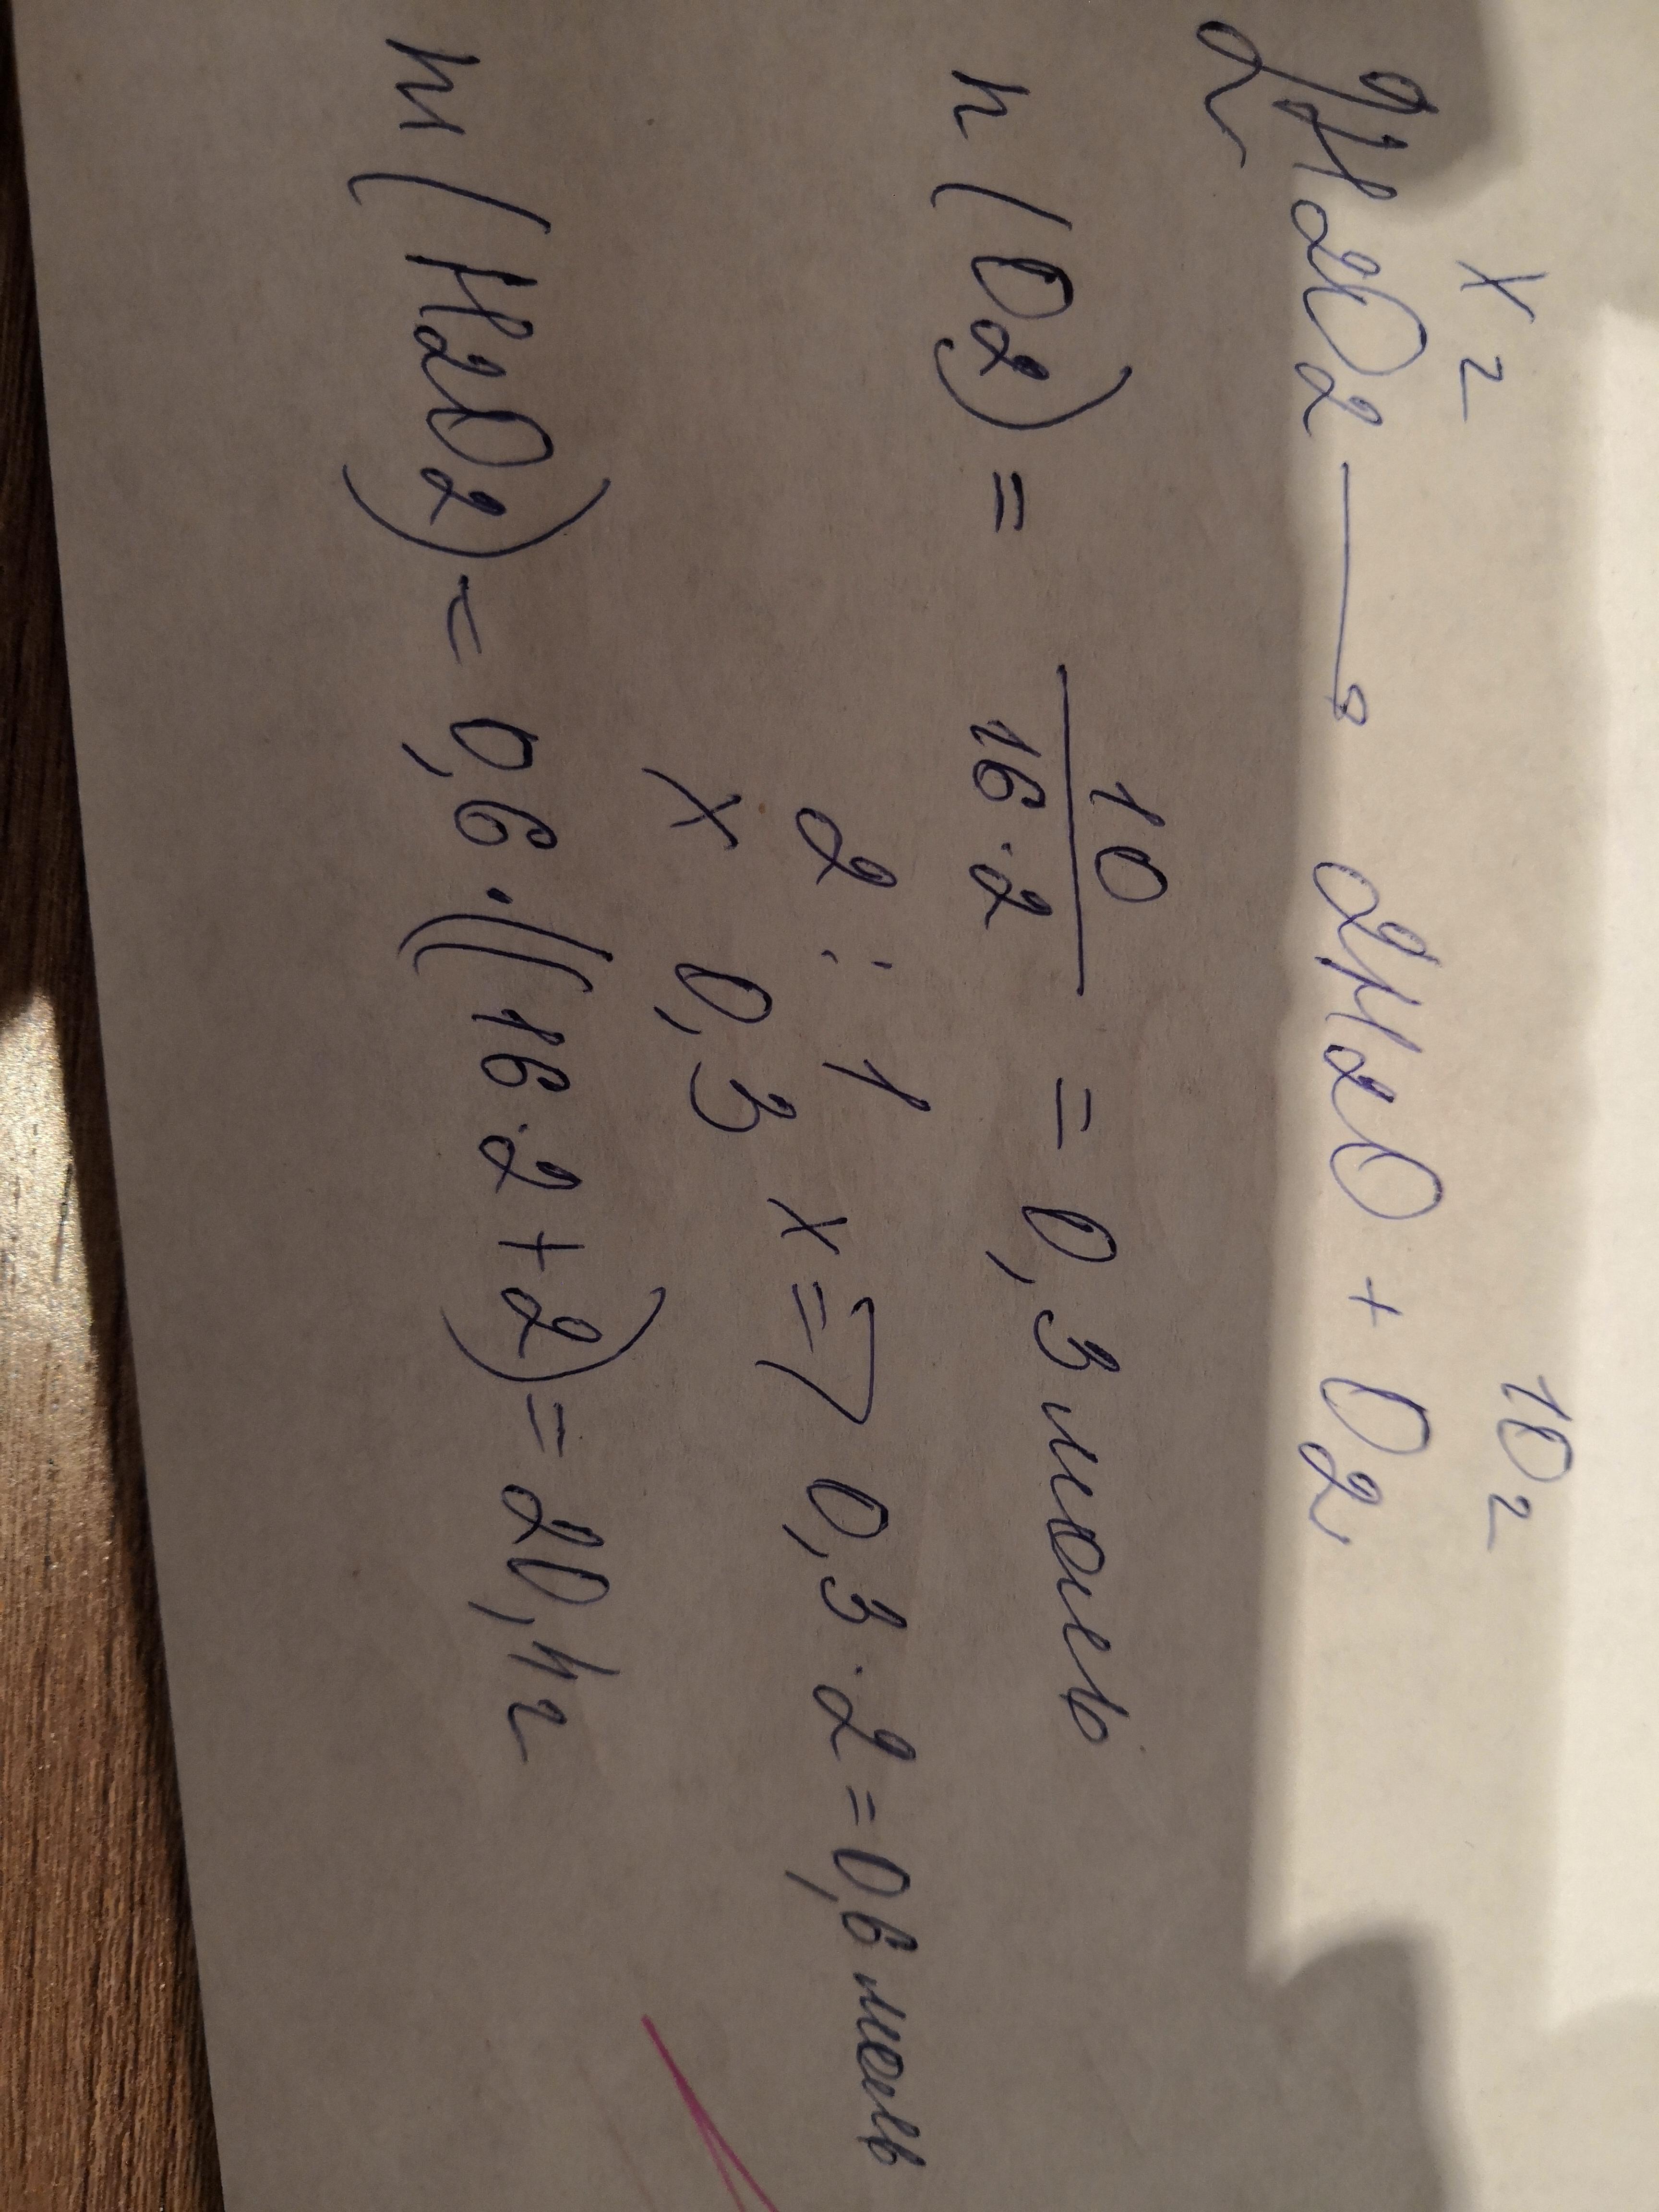 x г 10 г
2H2O2 → 2H2O + O2
2
n(O2) = 10/16·2 = 0,3 моль
2 : 1
x 0,3 x => 0,3·2=0,6 моль
m(H2O2) = 0,6·(16·2+2)=20,4г